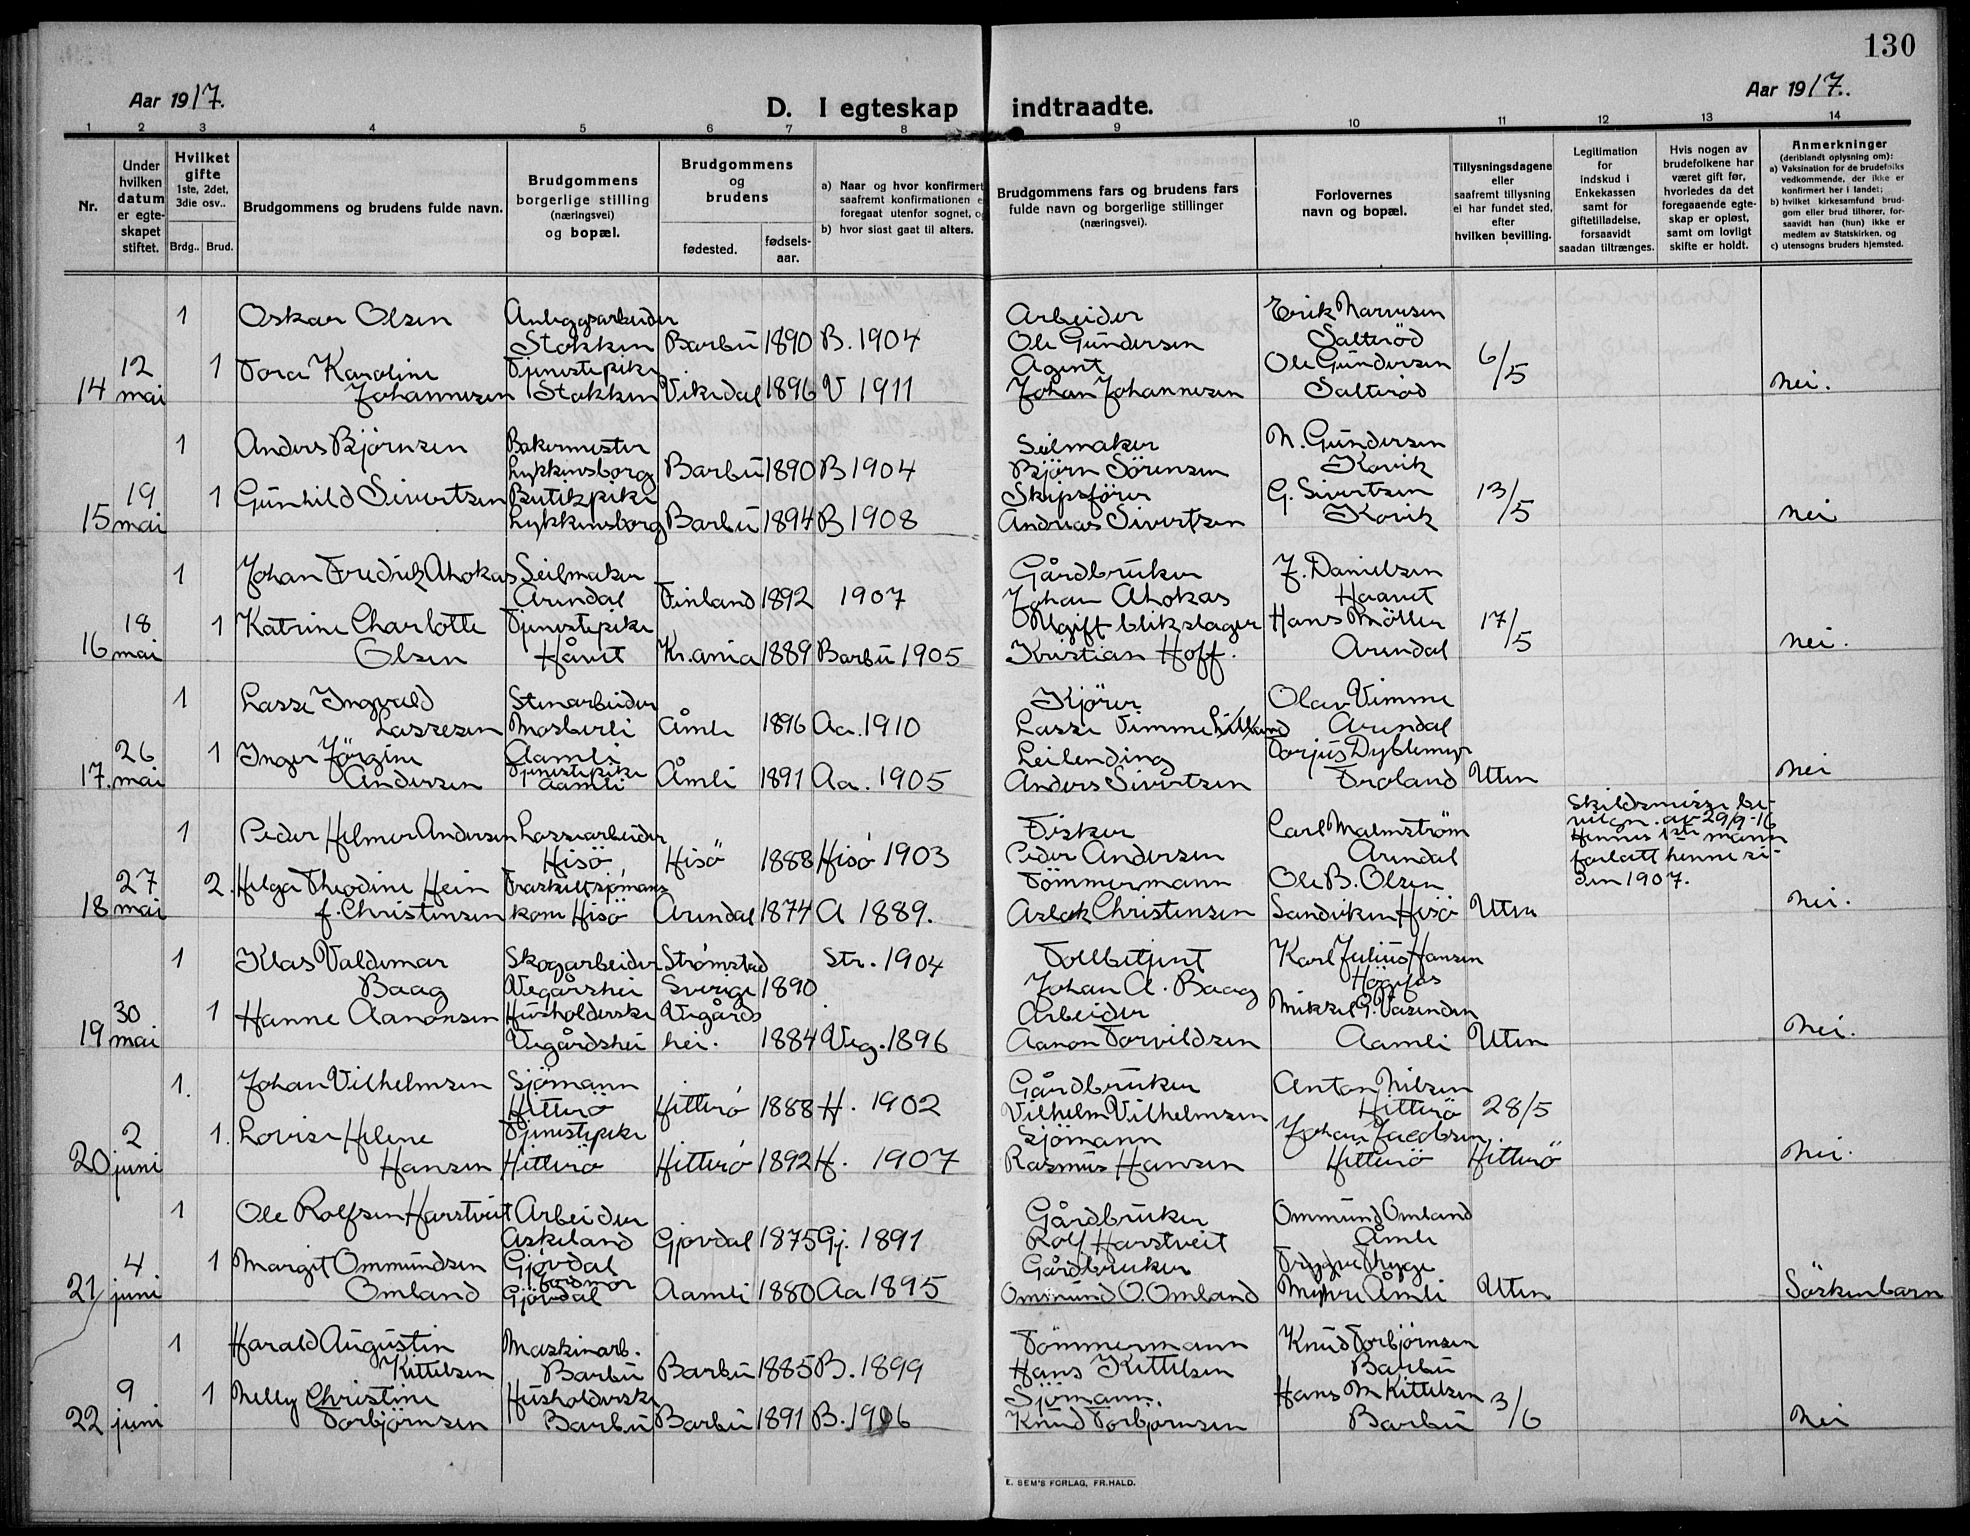 130
Aar 1917.
D. I egteskap indtraadte.
Aar 1917.
1 2 3 4 5 6 7 8 9 10 11 12 13 14
Nr.
Under hvilken datum er egte-skapet stiftet.
Hvilket gifte
1ste, 2det, 3die osv..
Brdg.. Brud.
Brudgommens og brudens fulde navn.
Brudgommens borgerlige stilling (næringsvei) og bopæl.
Brudgommens og brudens
fødested. fødsels-aar.
a) Naar og hvor konfirmert saafremt konfirmationen e foregaat utenfor sognet, og
b) hvor sidst gaat til alters.
Brudgommens fars og brudens fars fulde navn og borgerlige stillinger (næringsvei).
Forlovernes navn og bopæl.
Tillysningsdagene eller saafremt tillysning ei har fundet sted, efter hvilken bevilling.
Legitimation for indskud i Enkekassen samt for giftetilladelse, forsaavidt saadan tiltrænges.
Hvis nogen av brudefolkene har været gift før, hvorledes da det foregaaende egte-skap er opløst, samt om lovligt skifte er holdt.
Anmerkninger
(deriblandt oplysning om):
a) Vaksination for de brudefolks vedkommende, der ikke er konfirmert her i landet;
b) hvilket kirkesamfund brud-gom eller brud tilhører, for-saavidt han (hun) ikke er medlem av Statskirken, og
c) utensogns bruders hjemsted.
1 Oskar Olsen Anlegsarbeider Arbeider
Stokken Barbu 1890 B. 1904 Ole Gundersen Salterød
12 1 Tora Karoline Tjenestepike Agent Ole Gundersen 6/5
14 mai Johannesen Stokken Vikedal 1896 V 1911 Johan Johannesen Salterød nei.
1 Anders Bjørnsen Bakermester Seilmaker N. Gundersen
Lykkensborg Barbu 1890 B 1904 Bjørn Sørensen Kovik
19 1 Gunhild Sivertsen Butikpike Skipsfører G. Sivertsen 13/5
15 mai Lykkensborg Barbu 1894 B 1908 Andreas Sivertsen Kovik nei
1 Johan Fredrik Ahokas Seilmaker Gårdbruker J. Danielsen
Arendal Finland 1892 1907 Johan Ahokas Haavet
18 1 Katrine Charlotte Tjenestepike Ugift blikslager Hans Møller 17/5
16 mai Olsen Håvet Kr.ania 1889 Barbu 1905 Kristian Hoff. Arendal nei.
1 Lasse Ingvald Stenarbeider Kjører Olav Vimme
Lassesen Mosberli Åmli 1896 Aa. 1910 Lasse Vimme Arendal
26 1 Inger Jørgine Aamli Leilending Torjus Dyblemyr
17. mai Andersen Tjenestepike Aamli Åmli 1891 Aa. 1905 Anders Sivertsen Froland Uten nei
1 Peder Helmer Andersen Lossearbeider Fisker Carl Malmstrøm Skildsmisse be-
vilgn. av 29/9-16
Hisø Hisø 1888 Hisø 1903 Peder Andersen Arendal Hennes 1ste mann
forlatt henne si-
27 2. Helga Theodine Hein Fraskilt sjømans Tømmermann Ole B. Olsen den 1907.
18 mai f. Christensen kone Hisø Arendal 1874 A 1889. Aslak Christensen Sandviken Hisø Uten nei.
1 Klas Valdemar Skogarbeider Strømstad Str. 1904 Tollbetjent Karl Julius Hansen
Baag Vegårshei Sverige 1890 Johan A. Baag Høgefos
30 1 Hanne Aanonsen Husholderske Vegårds Arbeider
19 mai Vegårdshei hei. 1884 Veg. 1896 Aanon Torvildsen Aamli Uten nei.
1. Johan Vilhelmsen Sjømann Gårdbruker Anton Nilsen
Hitterø Hitterø 1888 H. 1902 Vilhelm Vilhelmsen Hitterø 28/5
2 1. Lovise Helene Tjenestepike Sjømann Johan Jacobsen.
20 juni Hansen Hitterø Hitterø 1892 H. 1907 Rasmus Hansen Hitterø Hitterø nei.
1 Ole Rolfsen Harstveit Arbeider Gårdbruker Ommund Omland
Askeland Gjøvdal 1875 Gj. 1891 Rolf Harstveit Åmli
4 1 Margit Ommundsen Gjøvdal Gårdbruker
21 juni Omland Jordmor Gjøvdal Aamli 1880 Aa 1895 Ommund O. Omland Åmli Uten Søskenbarn
1 Harald Augustin Maskinarb. Tømmermann Knud Torbjørnsen
Kittelsen Barbu Barbu 1885 B. 1899 Hans Kittelsen Barbu
9 1 Nelly Christine Husholderske Sjømann. Hans M Kittelsen 3/6
22 juni Torbjørnsen Barbu Barbu 1891 B. 1906 Knud Torbjørnsen Barbu nei
E. SEM'S FORLAG, FR.HALD.